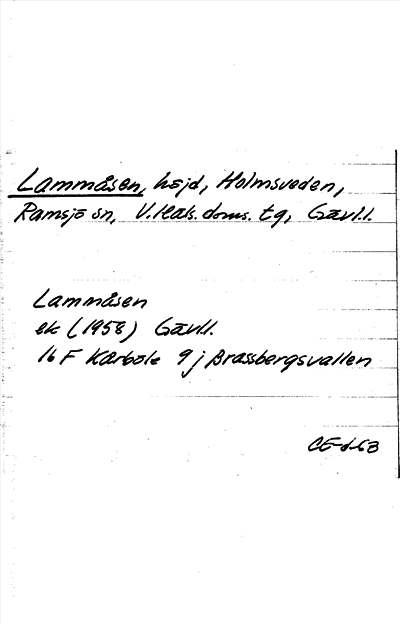 Lammåsen, höjd, Holmsveden,
Ramsjö sn, V. Häls. doms. tg, Gävl.l.
Lammåsen
ek (1958) Gävl.l.
16 F Kårböle 9j Brassbergsvallen